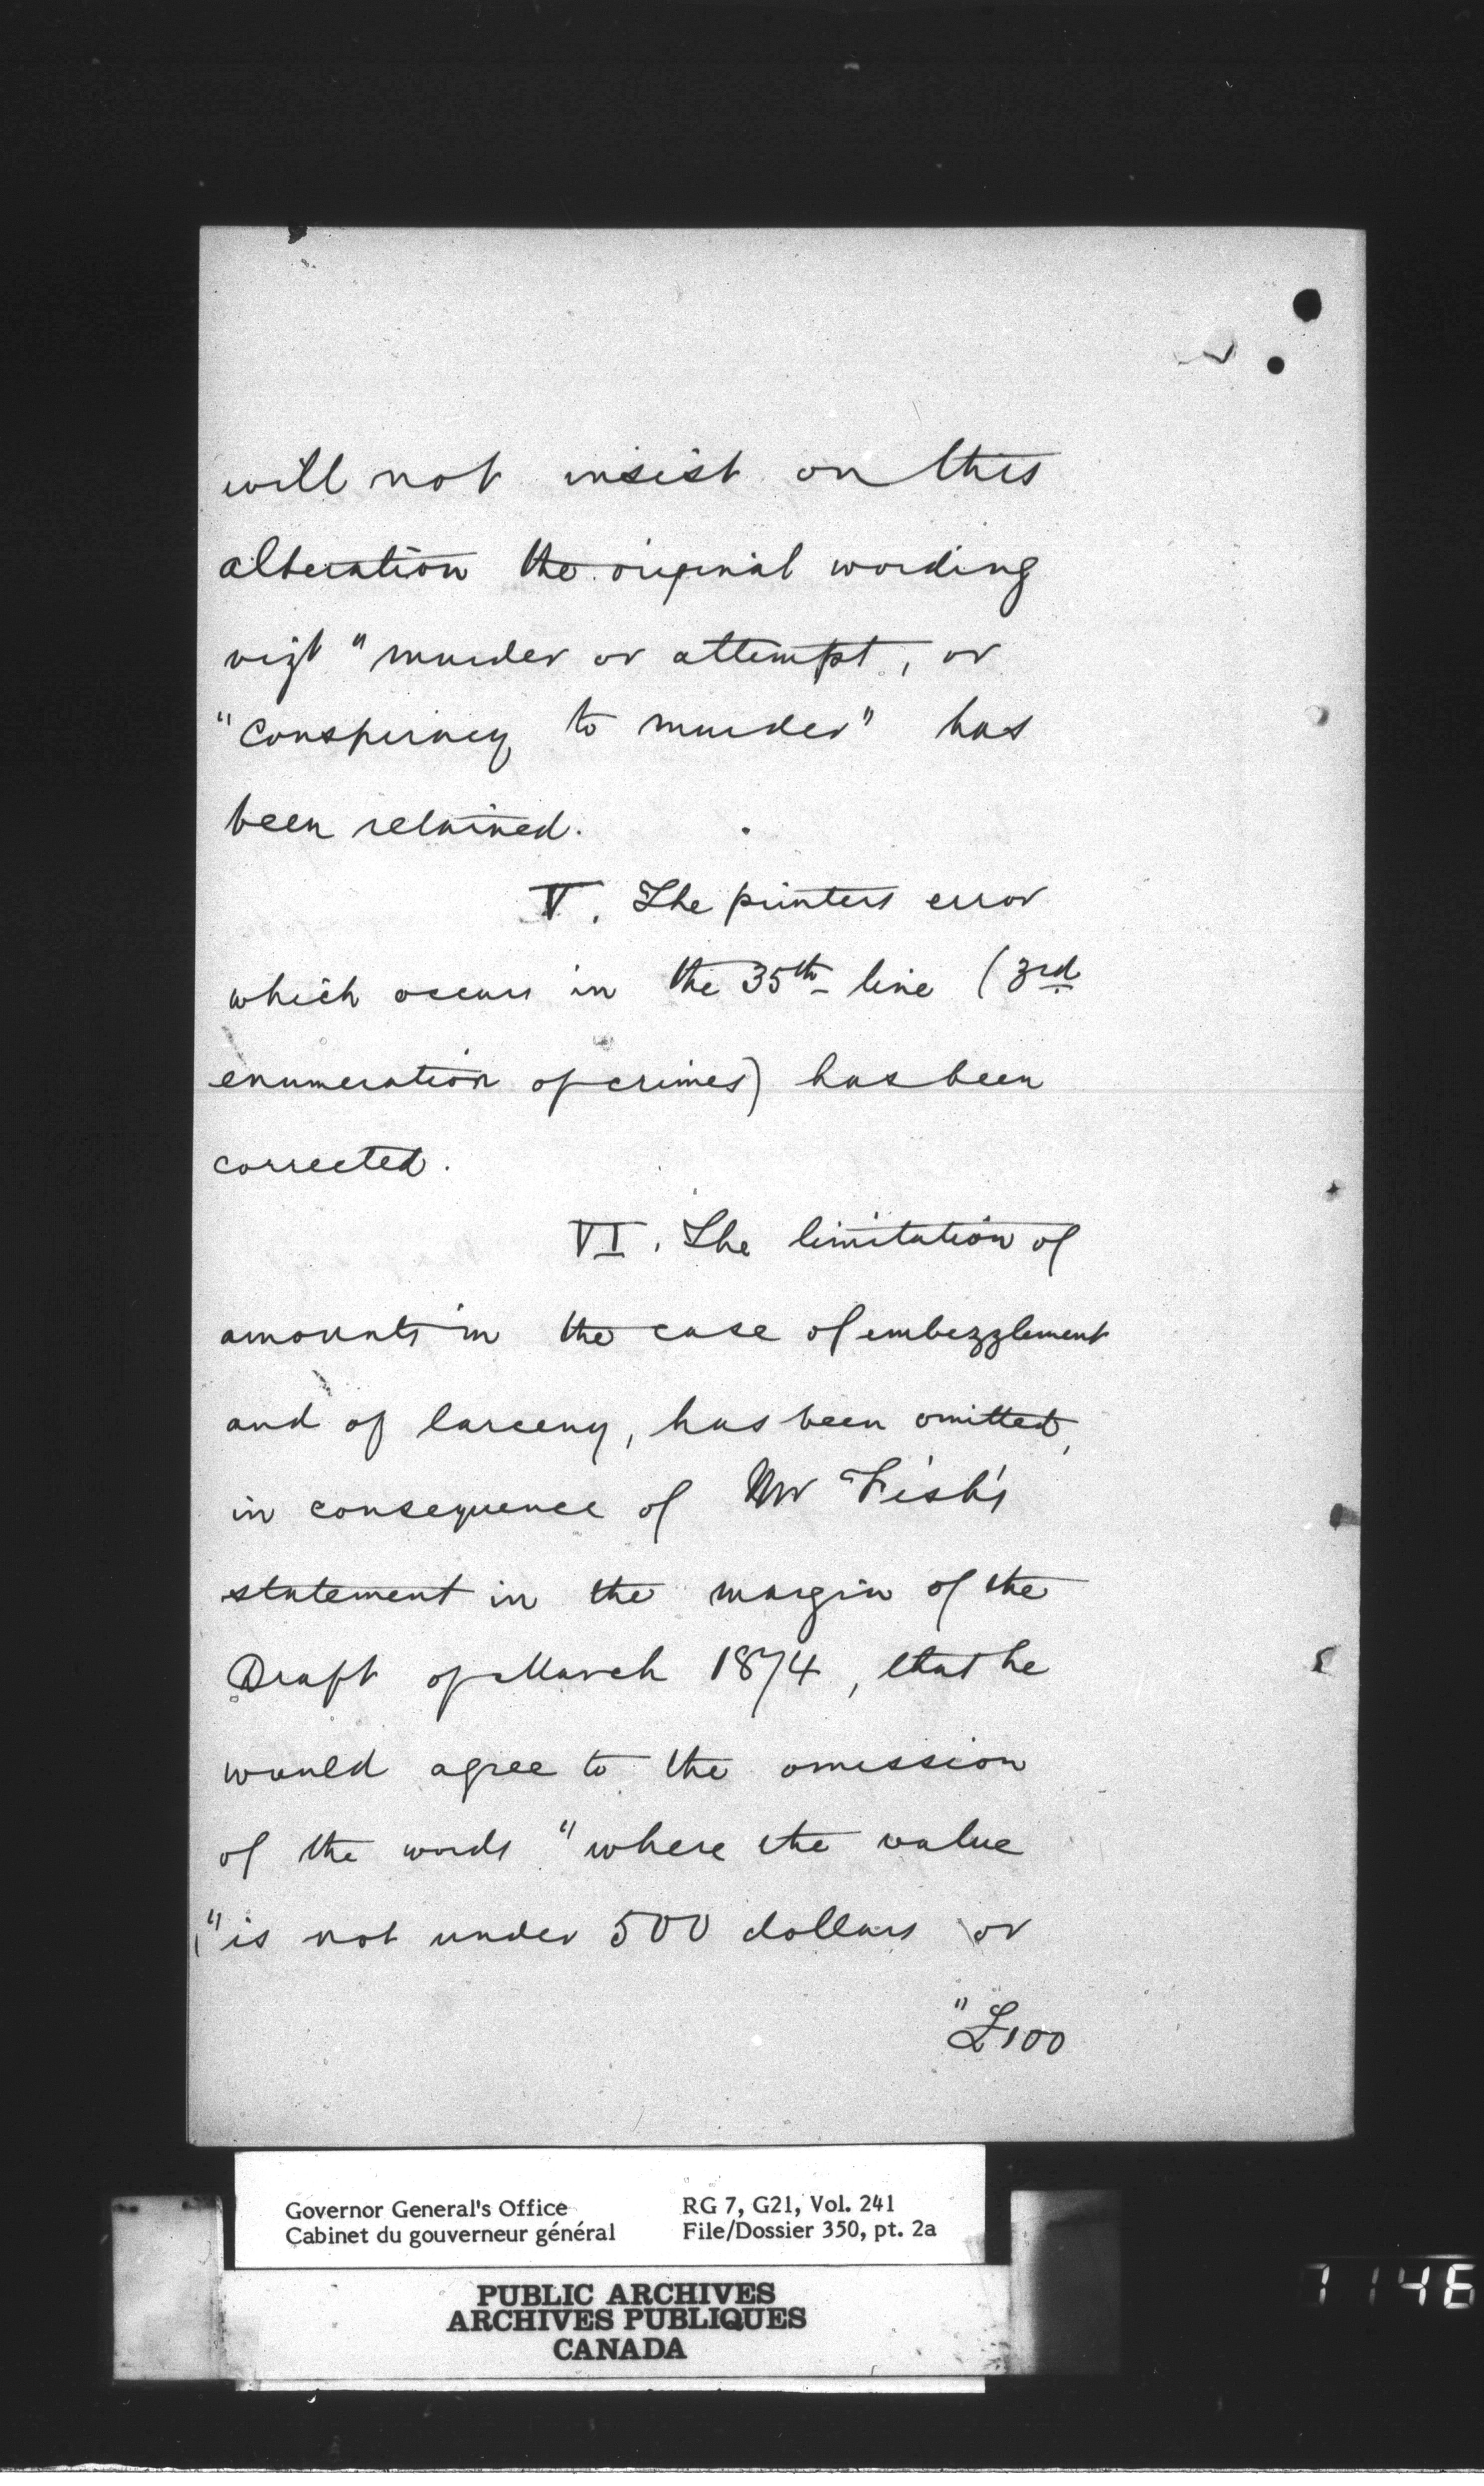 will not insist on this
alteration the original wording
vizt "murder or attempt, or
"conspiracy to murder" has
been retained.
V. The printers error
which occurs in the 35th line (3rd
enumeration of crimes) has been
corrected.
VI. The limitation of
amounts in the case of embezzlement
and of larceny, has been omitted,
in consequence of Mr Fish's
statement in the margin of the
Draft of March 1874, that he
would agree to the omission
of the words "where the value
"is not under 500 dollars or
"£100
Governor General's Office RG 7, G21, Vol. 241
Cabinet du gouverneur général File/Dossier 350, pt. 2a
PUBLIC ARCHIVES
ARCHIVES PUBLIQUES
CANADA
7146